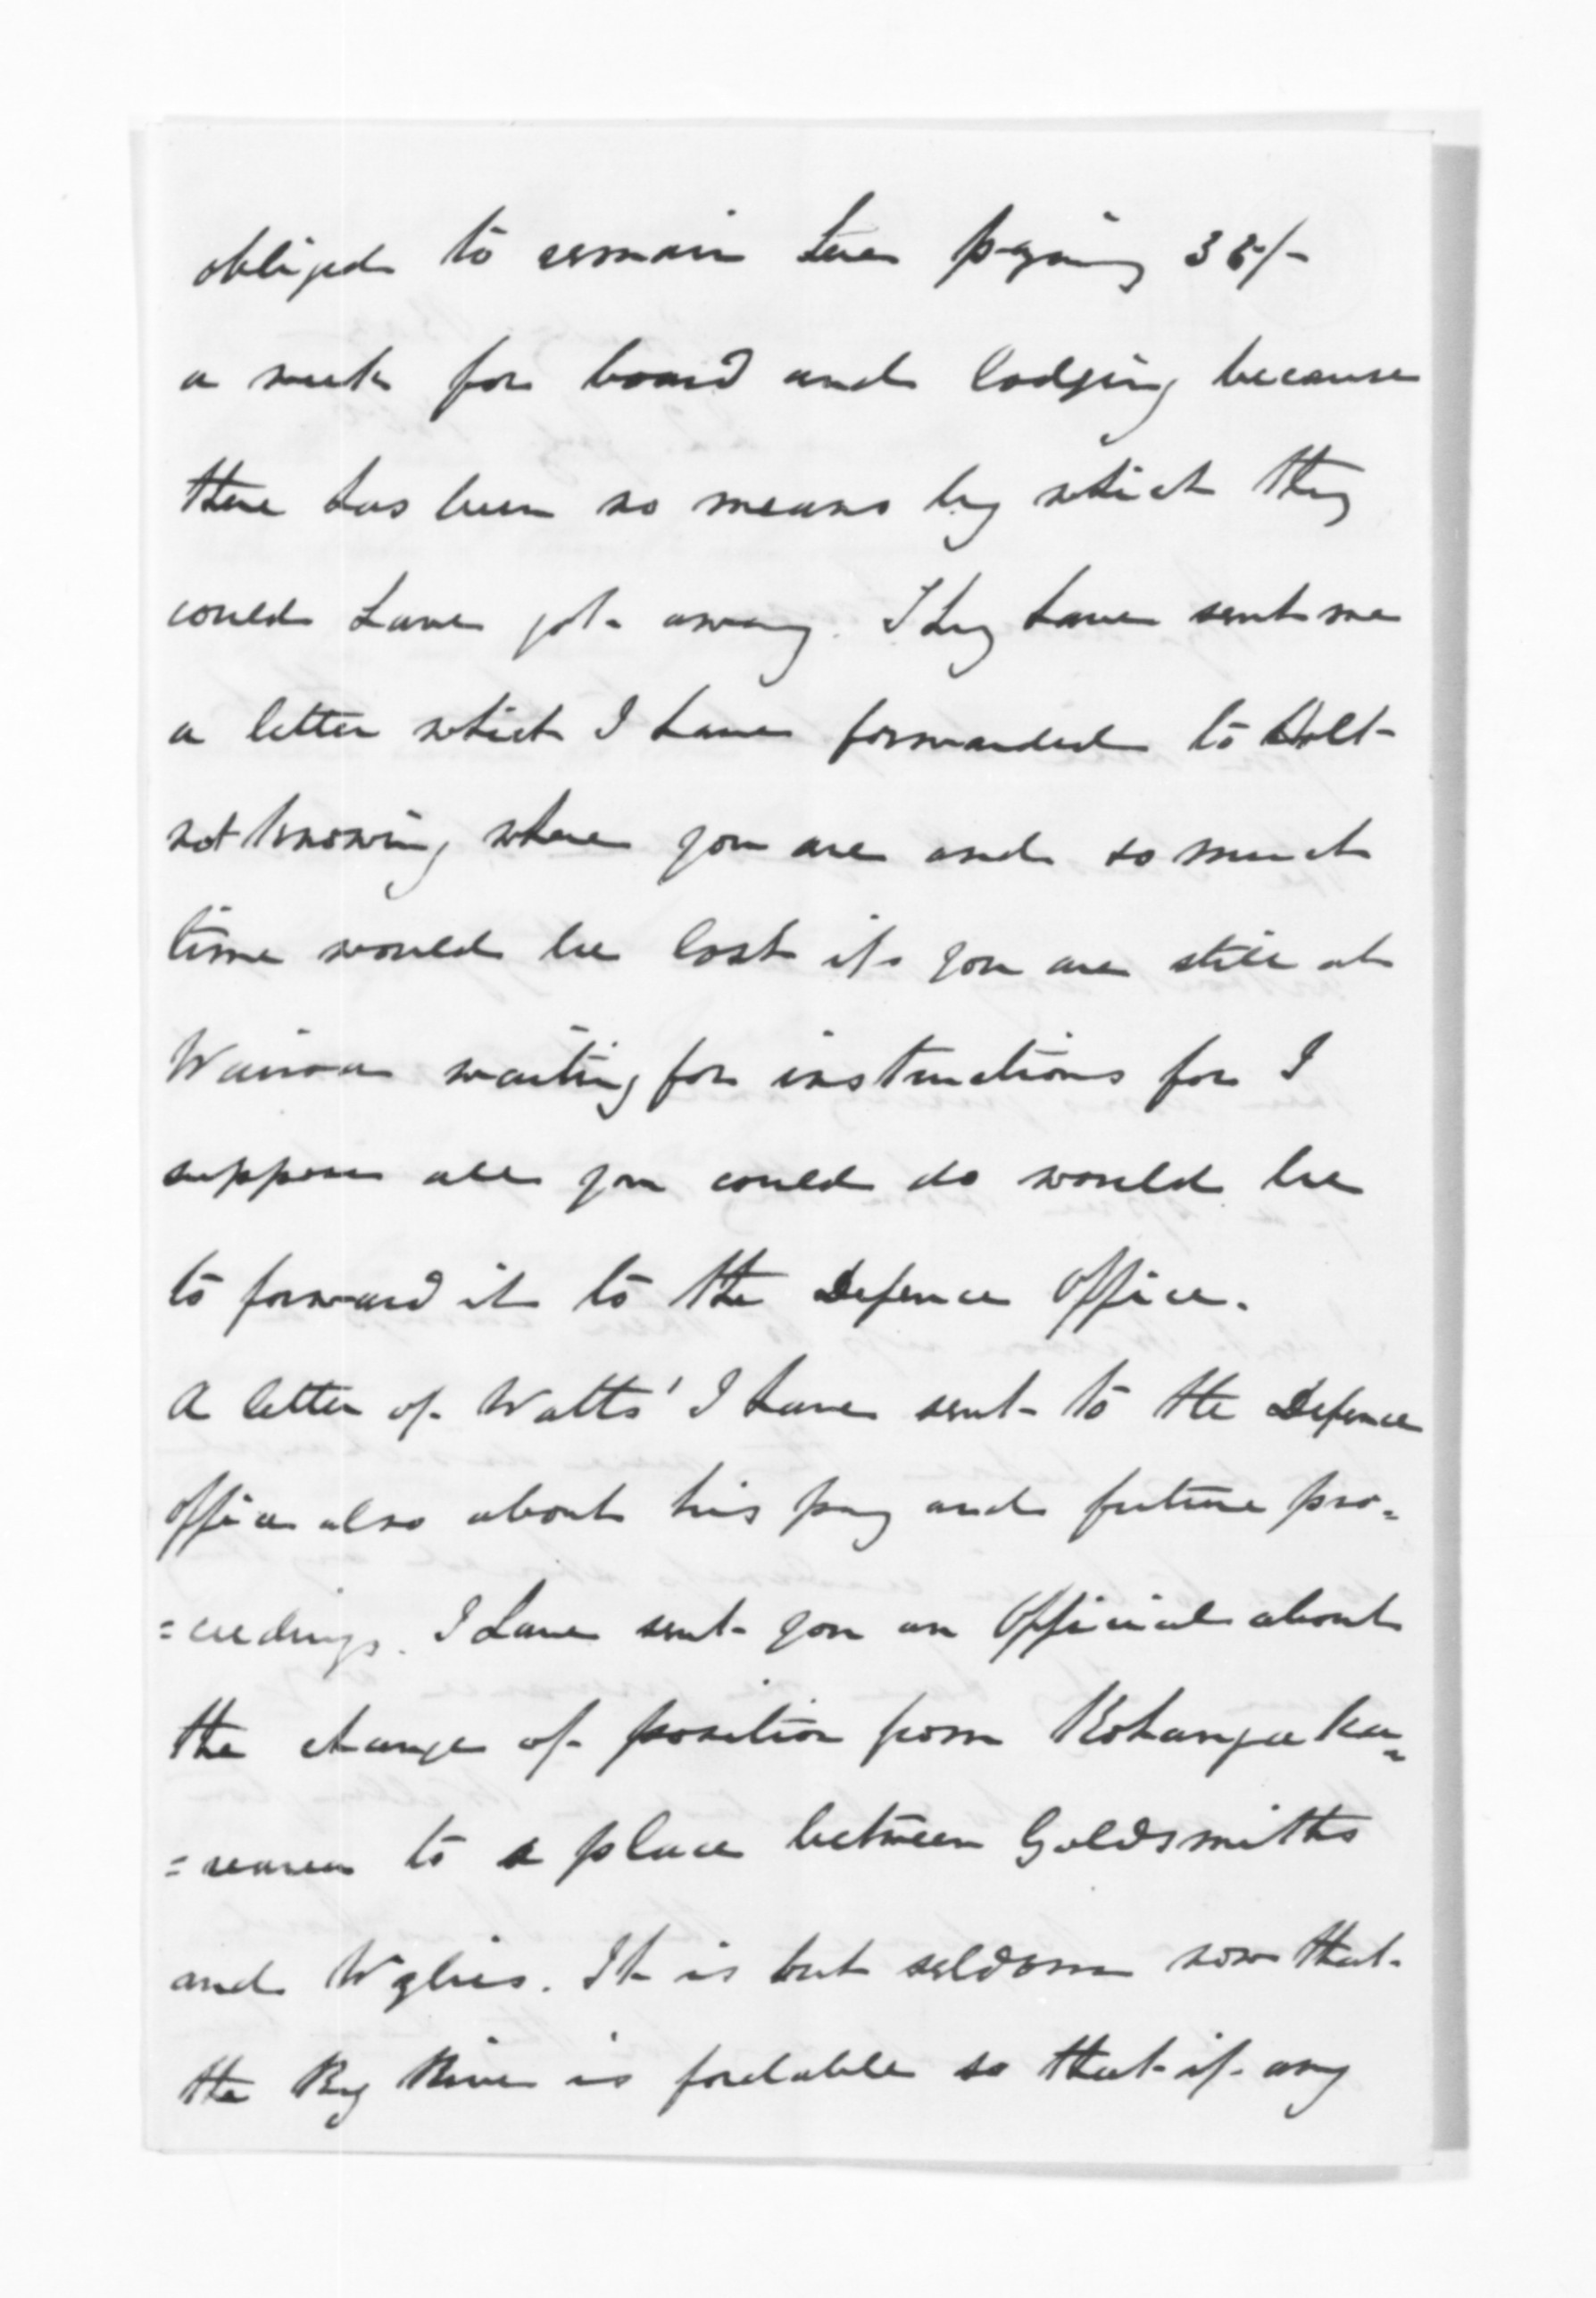 obliged to remain here paying 35/-
a week for board and lodging because
there has been no means by which they
could have got away. They have sent me
a letter which I have forwarded to Holt
not knowing where you are and so much
time would be lost if you are still at
Wairoa waiting for instructions for I
suppose all you could do would be
to forward it to the Defence Office.
A letter of Watts' I have sent to the Defence
Office also about his pay and future pro=
=ceedings. I have sent you an Official about
the change of position from Kohangaka=
=reaea to a place between Goldsmiths
and Wylies. It is but seldom now that
the Big River is fordable so that if any